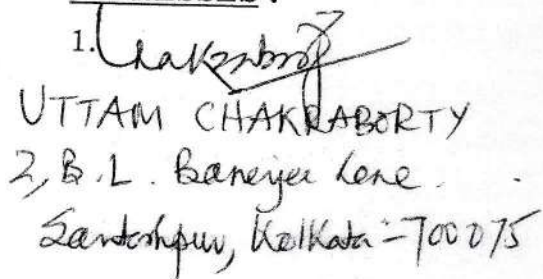 1. Chakraborty
UTTAM CHAKRABORTY
2, B.L. Banerjee Lane.
Santoshpur, Kolkata-700075